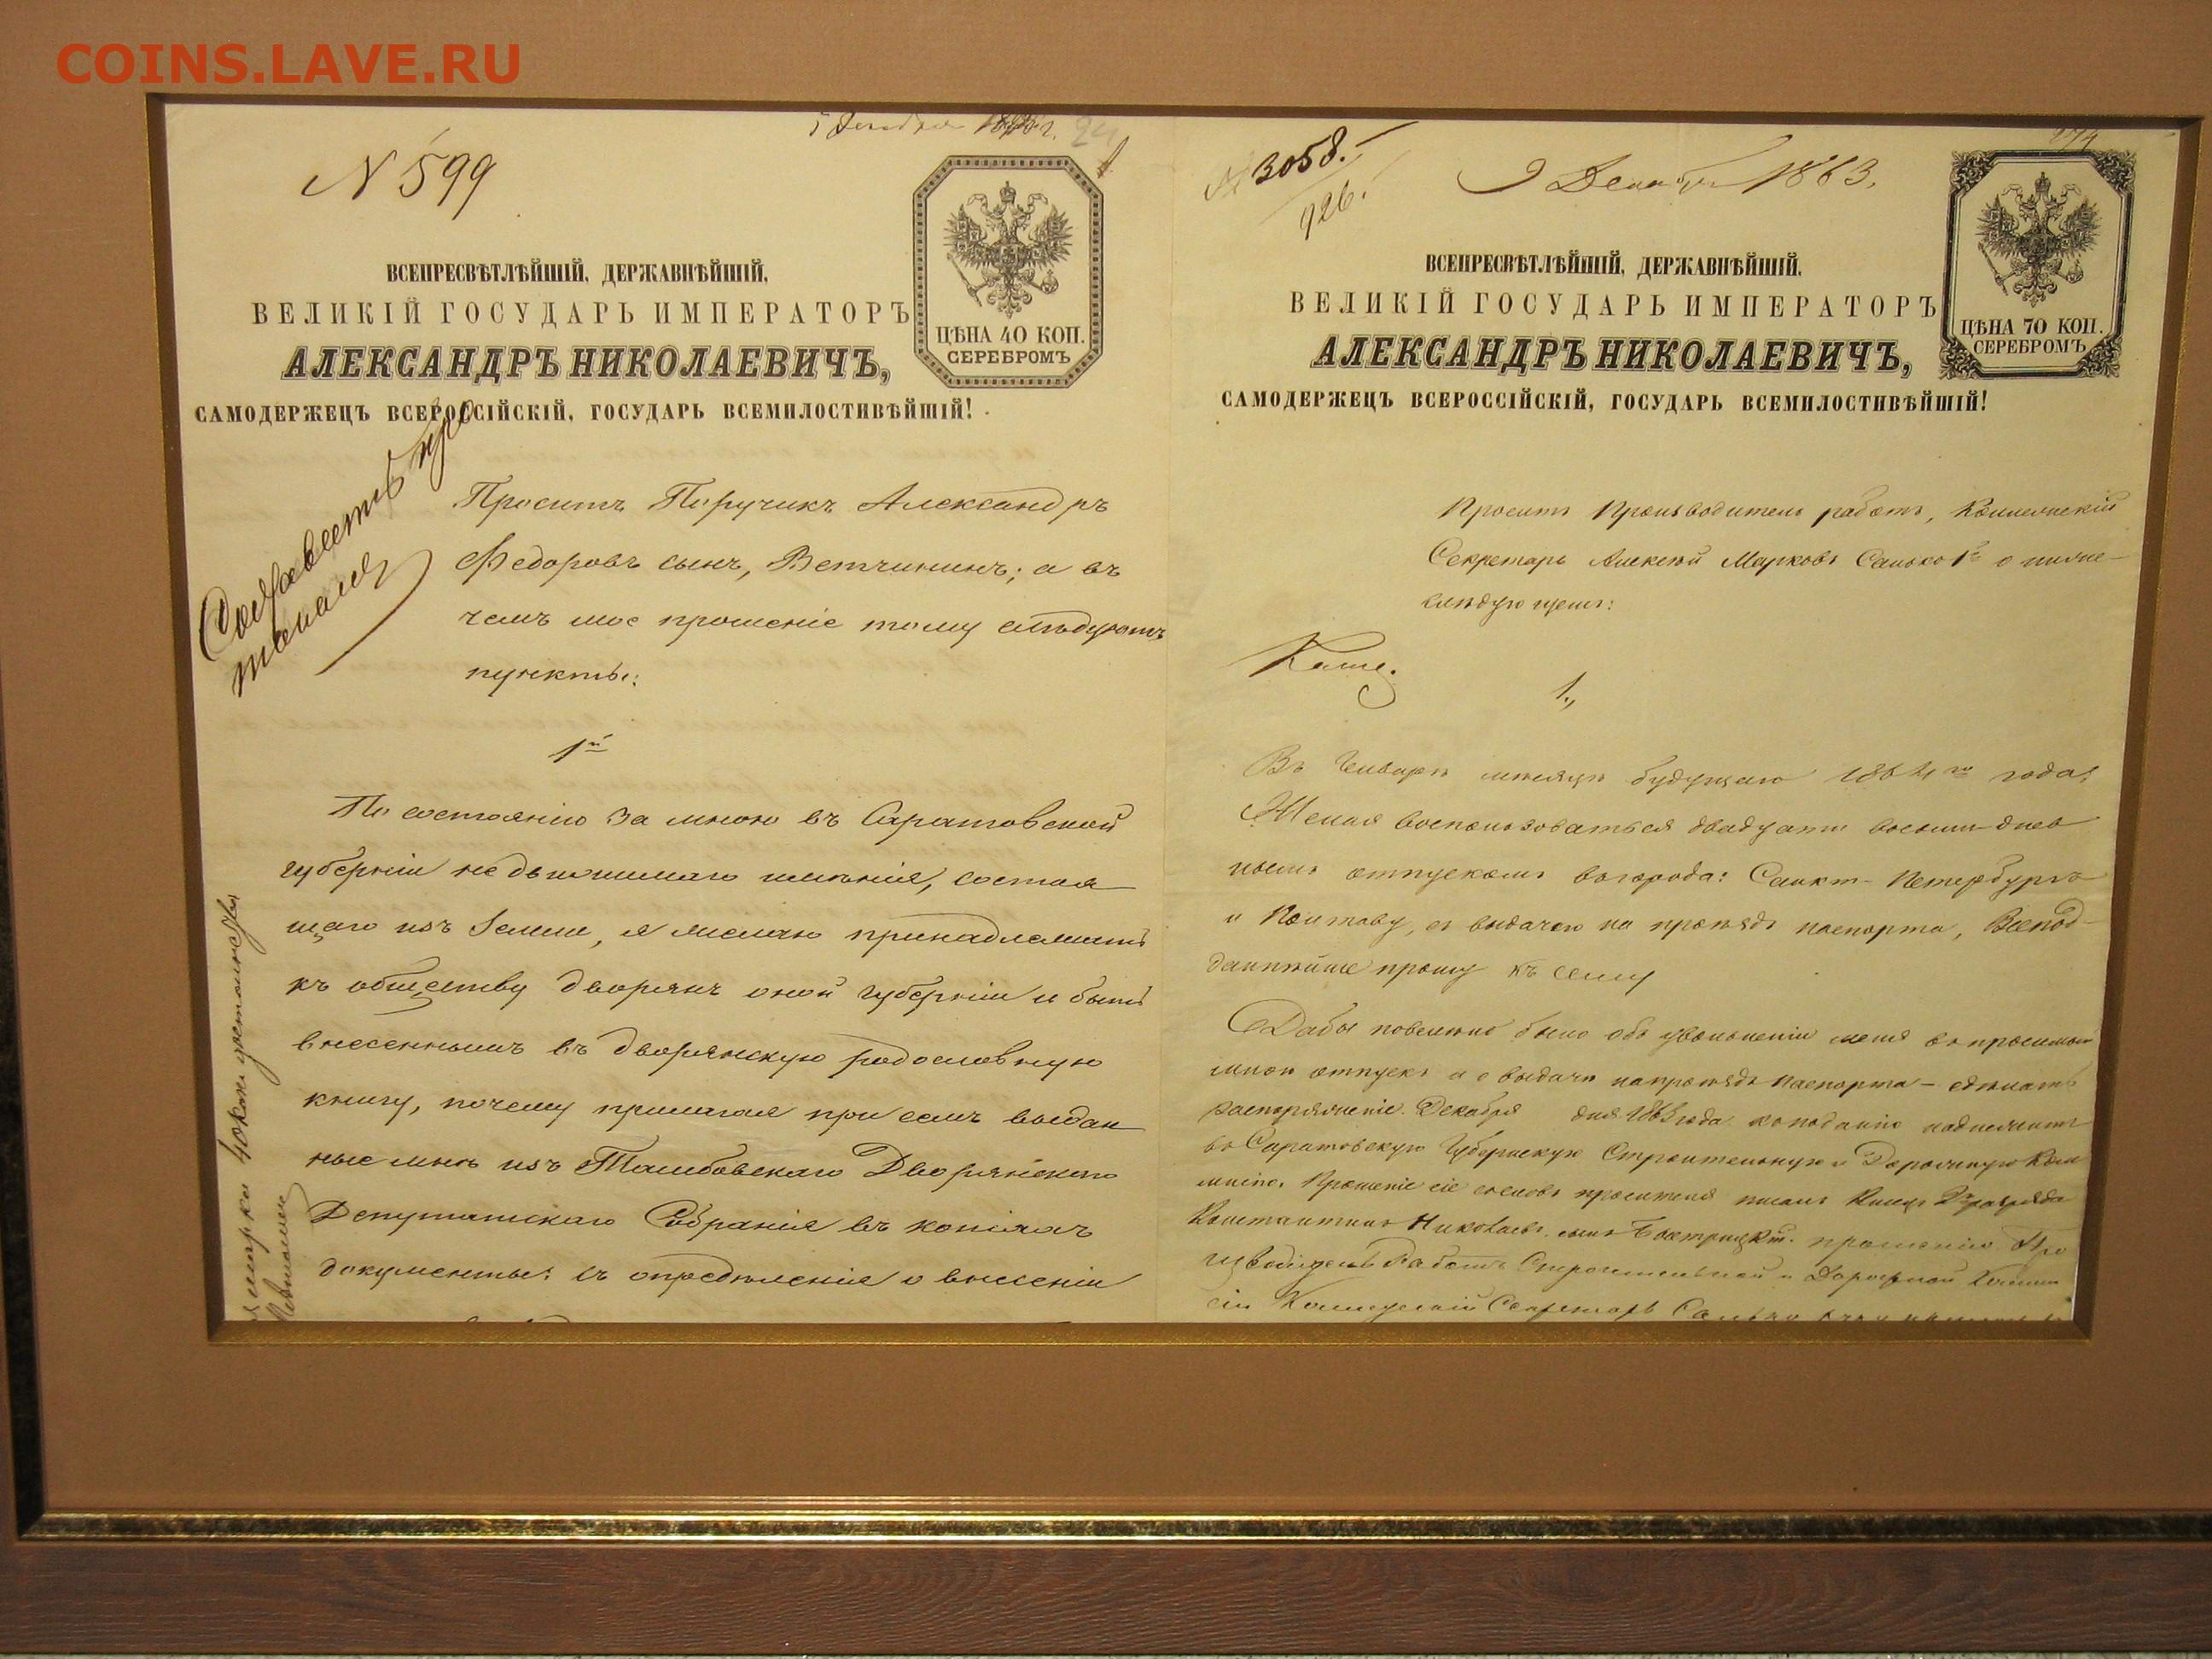 COINS.LAVE.RU
N 599
ВСЕПРЕСВѢТЛѢЙШІЙ, ДЕРЖАВНѢЙШІЙ,
ВЕЛИКІЙ ГОСУДАРЬ ИМПЕРАТОРЪ
АЛЕКСАНДРЪ НИКОЛАЕВИЧЪ,
САМОДЕРЖЕЦЪ ВСЕРОССІЙСКІЙ, ГОСУДАРЬ ВСЕМИЛОСТИВѢЙШІЙ!
ЦѢНА 40 КОП.
СЕРЕБРОМЪ
Проситъ Поручикъ Александръ
Федоровъ сынъ, Ветчининъ; а въ
чемъ мое прошеніе тому слѣдуютъ
пункты:
1й
По состоянію за мною въ Саратовской
губерніи недвижимаго имѣнія, состоя
щаго изъ земли, я желаю принадлежать
къ обществу дворянъ оной губерніи и быть
внесеннымъ въ дворянскую родословную
книгу, почему прилагая при семъ выдан
ные мнѣ изъ Тамбовскаго Дворянскаго
Депутатскаго Собранія въ копіяхъ
документы: съ опредѣленія о внесеніи
40 коп.
3058.
926.
9 Декабря 1863.
ВСЕПРЕСВѢТЛѢЙШІЙ, ДЕРЖАВНѢЙШІЙ,
ВЕЛИКІЙ ГОСУДАРЬ ИМПЕРАТОРЪ
АЛЕКСАНДРЪ НИКОЛАЕВИЧЪ,
САМОДЕРЖЕЦЪ ВСЕРОССІЙСКІЙ, ГОСУДАРЬ ВСЕМИЛОСТИВѢЙШІЙ!
ЦѢНА 70 КОП.
СЕРЕБРОМЪ
Проситъ Производитель работъ, Коллежскій
Секретарь Алексѣй Марковъ о ниже-
слѣдующемъ:
1.,
Въ Январѣ мѣсяцѣ будущаго 1864го года,
Желая воспользоваться двадцати восьми днев
нымъ отпускомъ въ города: Санкт-Петербургъ
и Полтаву, съ выдачею на проѣздъ паспорта, Всепод-
даннѣйше прошу къ сему
Дабы повелѣно было объ увольненіи меня въ просимый
мною отпускъ и о выдачи на проѣздъ паспорта - сдѣлать
распоряженіе. Декабря дня 1863 года. къ поданію надлежитъ
въ Саратовскую Губернскую Строительную и Дорожную Ком
мисію. Прошеніе сіе со словъ просителя писалъ
Константинъ Николаевъ сынъ прошенію Про
изводитель Работъ Строительной и Дорожной Коммис
сіи Коллежскій Секретарь